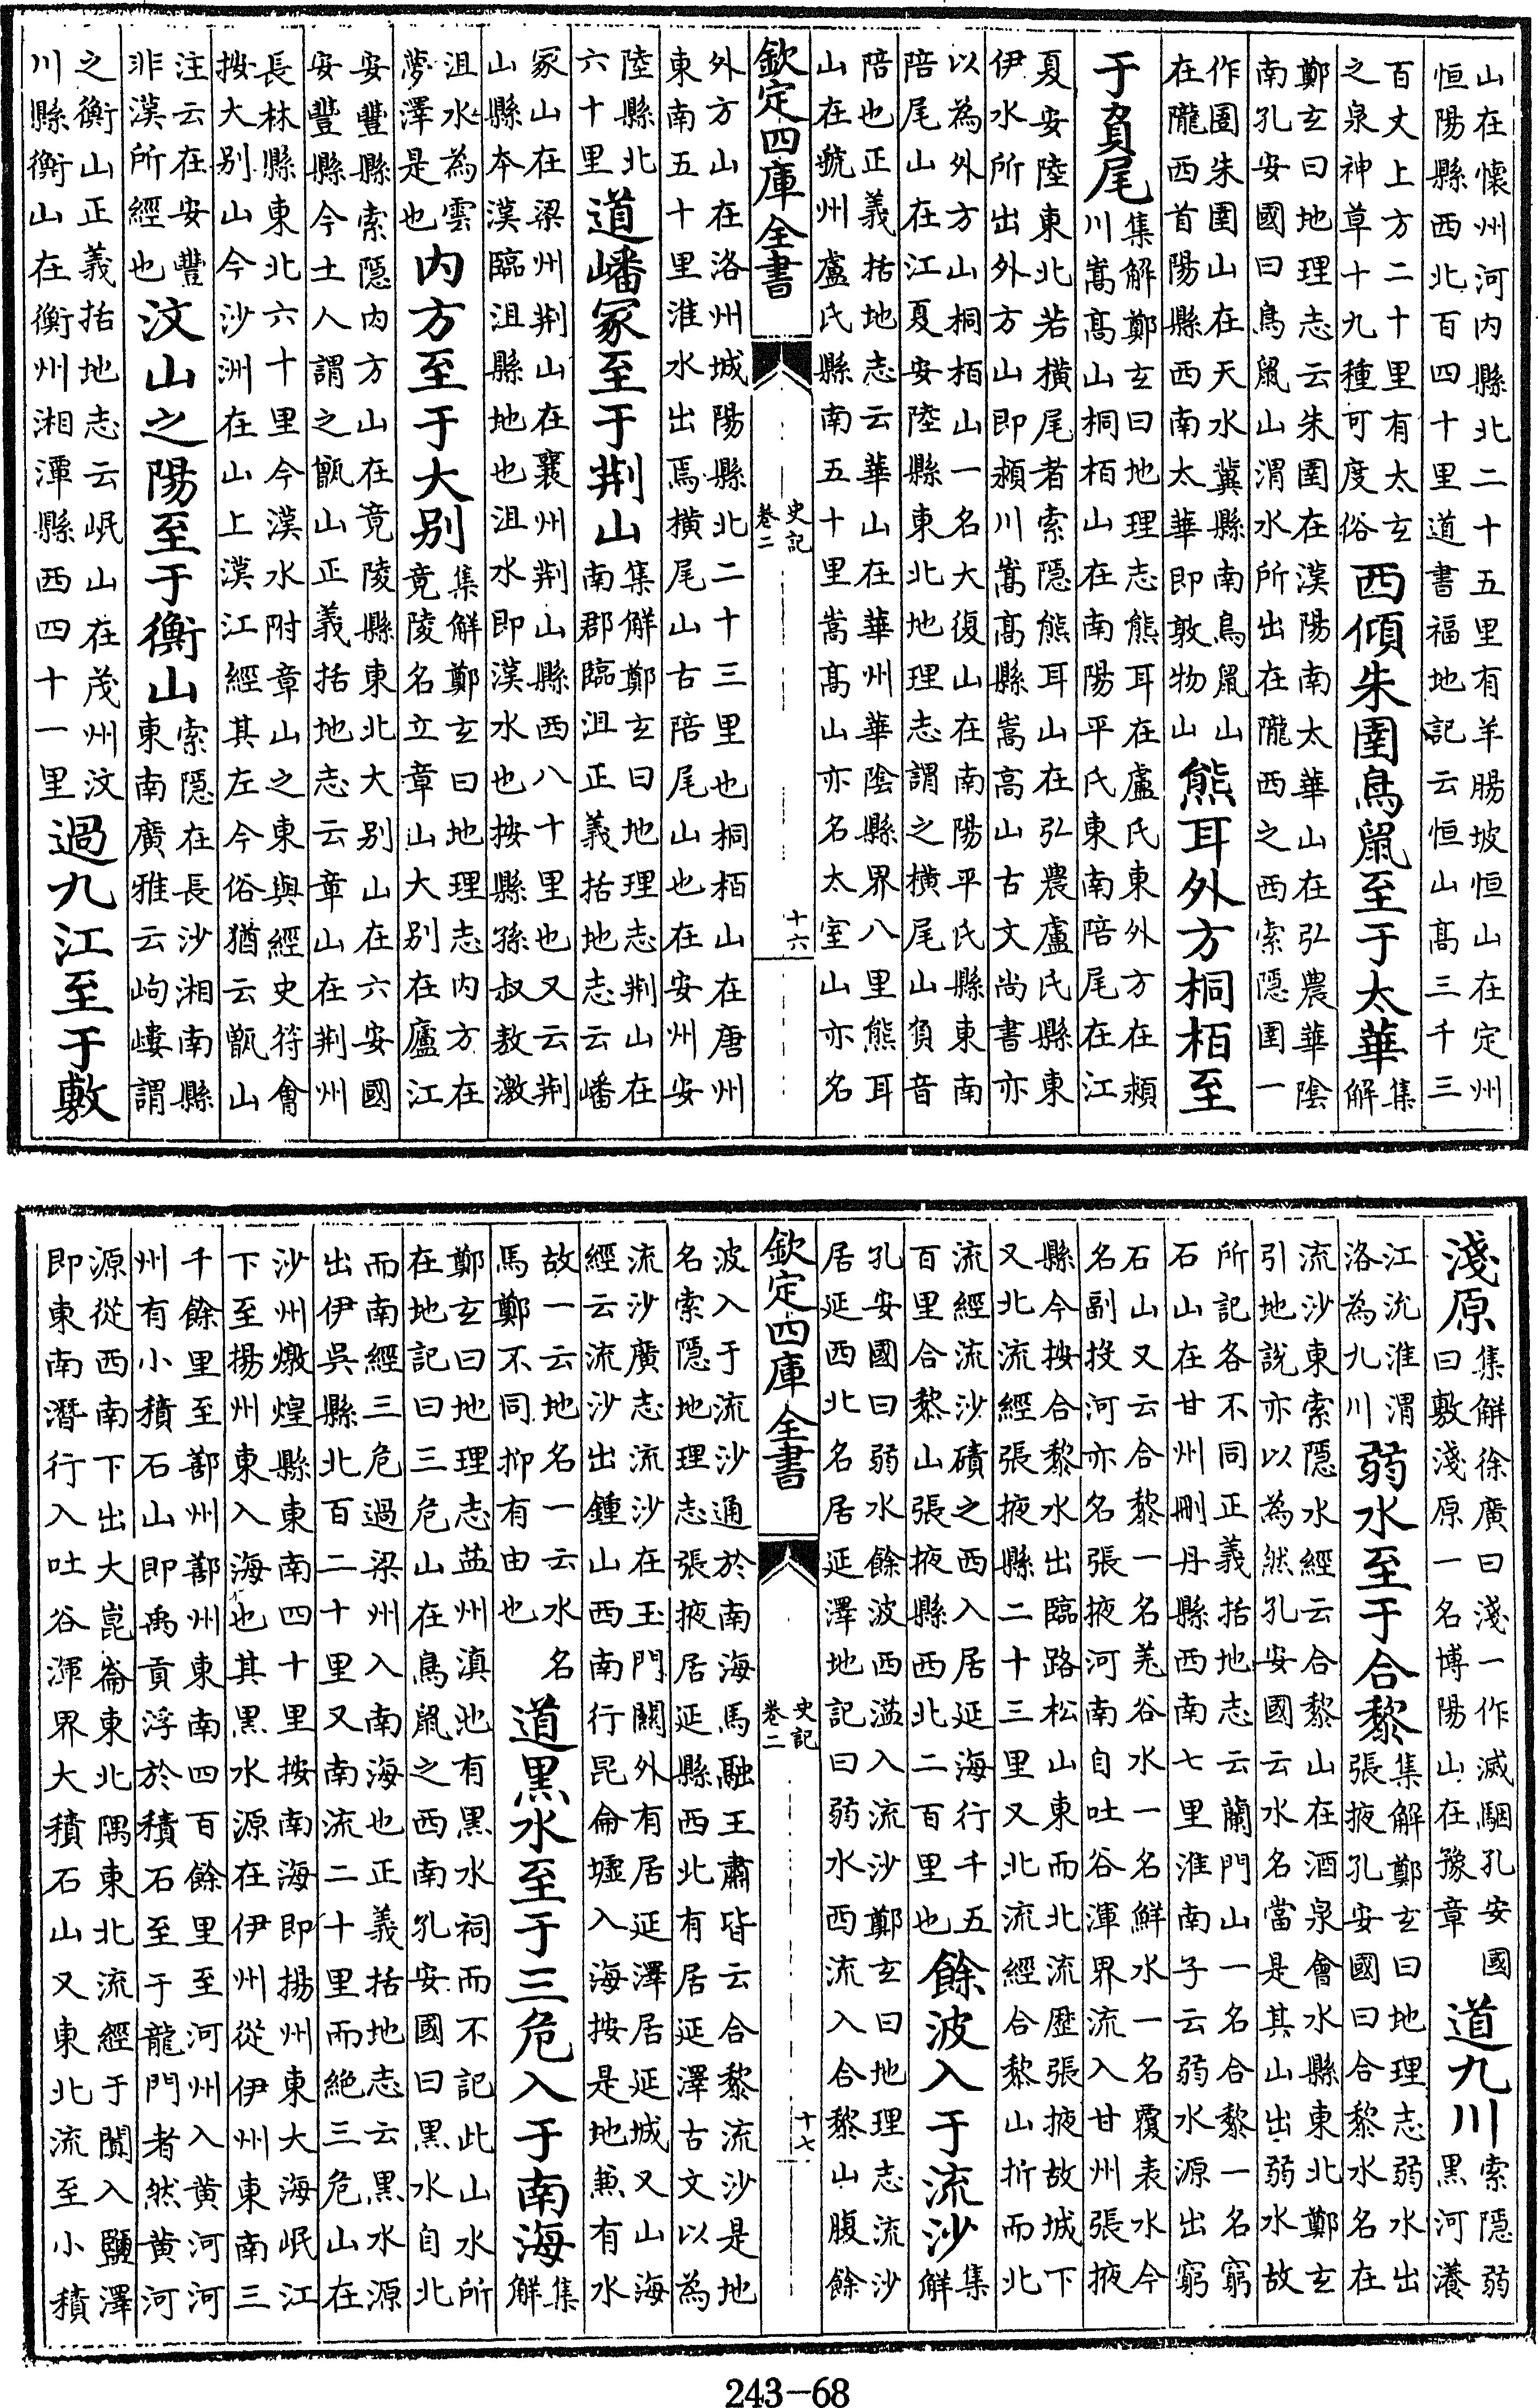 山在懷州河内縣北二十五里有羊腸坡恒山在定州
恒陽縣西北百四十里道書福地記云恒山髙三千三
百丈上方二十里有太玄
之泉神草十九種可度俗
西傾朱圉鳥鼠至于太華
集
解
鄭玄曰地理志云朱圉在漢陽南太華山在弘農華陰
南孔安國曰鳥鼠山渭水所出在隴西之西索隱圉一
作圄朱圉山在天水冀縣南鳥鼠山
在隴西首陽縣西南太華即敦物山
熊耳外方桐栢至
于負尾
集解鄭玄曰地理志熊耳在盧氏東外方在潁
川嵩髙山桐栢山在南陽平氏東南陪尾在江
夏安陸東北若橫尾者索隱熊耳山在弘農盧氏縣東
伊水所出外方山即潁川嵩髙縣嵩高山古文尚書亦
以為外方山桐栢山一名大復山在南陽平氏縣東南
陪尾山在江夏安陸縣東北地理志謂之橫尾山負音
陪也正義括地志云華山在華州華陰縣界八里熊耳
山在虢州盧氏縣南五十里嵩髙山亦名太室山亦名
欽定四庫全書
史記
卷二
十六
外方山在洛州城陽縣北二十三里也桐栢山在唐州
東南五十里淮水出焉橫尾山古陪尾山也在安州安
陸縣北
六十里
道嶓冢至于荆山
集解鄭玄曰地理志荆山在
南郡臨沮正義括地志云嶓
冢山在梁州荆山在襄州荆山縣西八十里也又云荆
山縣本漢臨沮縣地也沮水即漢水也按縣孫叔敖激
沮水為雲
夢澤是也
内方至于大别
集解鄭玄曰地理志内方在
竟陵名立章山大别在廬江
安豐縣索隱内方山在竟陵縣東北大别山在六安國
安豐縣今土人謂之甑山正義括地志云章山在荆州
長林縣東北六十里今漢水附章山之東與經史符會
按大别山今沙洲在山上漢江經其左今俗猶云甑山
注云在安豐
非漢所經也
汶山之陽至于衡山
索隱在長沙湘南縣
東南廣雅云岣嶁謂
之衡山正義括地志云岷山在茂州汶
川縣衡山在衡州湘潭縣西四十一里
過九江至于敷
淺原
集解徐廣曰淺一作滅駰孔安國
曰敷淺原一名博陽山在豫章
道九川
索隱弱
黑河瀁
江沇淮渭
洛為九川
弱水至于合黎
集解鄭玄曰地理志弱水出
張掖孔安國曰合黎水名在
流沙東索隱水經云合黎山在酒泉會水縣東北鄭玄
引地說亦以為然孔安國云水名當是其山出弱水故
所記各不同正義括地志云蘭門山一名合黎一名窮
石山在甘州刪丹縣西南七里淮南子云弱水源出窮
石山又云合黎一名羌谷水一名鮮水一名覆表水今
名副投河亦名張掖河南自吐谷渾界流入甘州張掖
縣今按合黎水出臨路松山東而北流歷張掖故城下
又北流經張掖縣二十三里又北流經合黎山折而北
流經流沙磧之西入居延海行千五
百里合黎山張掖縣西北二百里也
餘波入于流沙
集
解
孔安國曰弱水餘波西溢入流沙鄭玄曰地理志流沙
居延西北名居延澤地記曰弱水西流入合黎山腹餘
欽定四庫全書
史記
卷二
十七
波入于流沙通於南海馬融王肅皆云合黎流沙是地
名索隱地理志張掖居延縣西北有居延澤古文以為
流沙廣志流沙在玉門關外有居延澤居延城又山海
經云流沙出鍾山西南行昆侖墟入海按是地兼有水
故一云地名一云水名
馬鄭不同抑有由也
道黒水至于三危入于南海
集
解
鄭玄曰地理志益州滇池有黒水祠而不記此山水所
在地記曰三危山在鳥鼠之西南孔安國曰黒水自北
而南經三危過梁州入南海也正義括地志云黒水源
出伊吳縣北百二十里又南流二十里而絶三危山在
沙州燉煌縣東南四十里按南海即揚州東大海岷江
下至揚州東入海也其黒水源在伊州從伊州東南三
千餘里至鄯州鄯州東南四百餘里至河州入黃河河
州有小積石山即禹貢浮於積石至于龍門者然黄河
源從西南下出大崑崙東北隅東北流經于闐入鹽澤
即東南潛行入吐谷渾界大積石山又東北流至小積
243-68